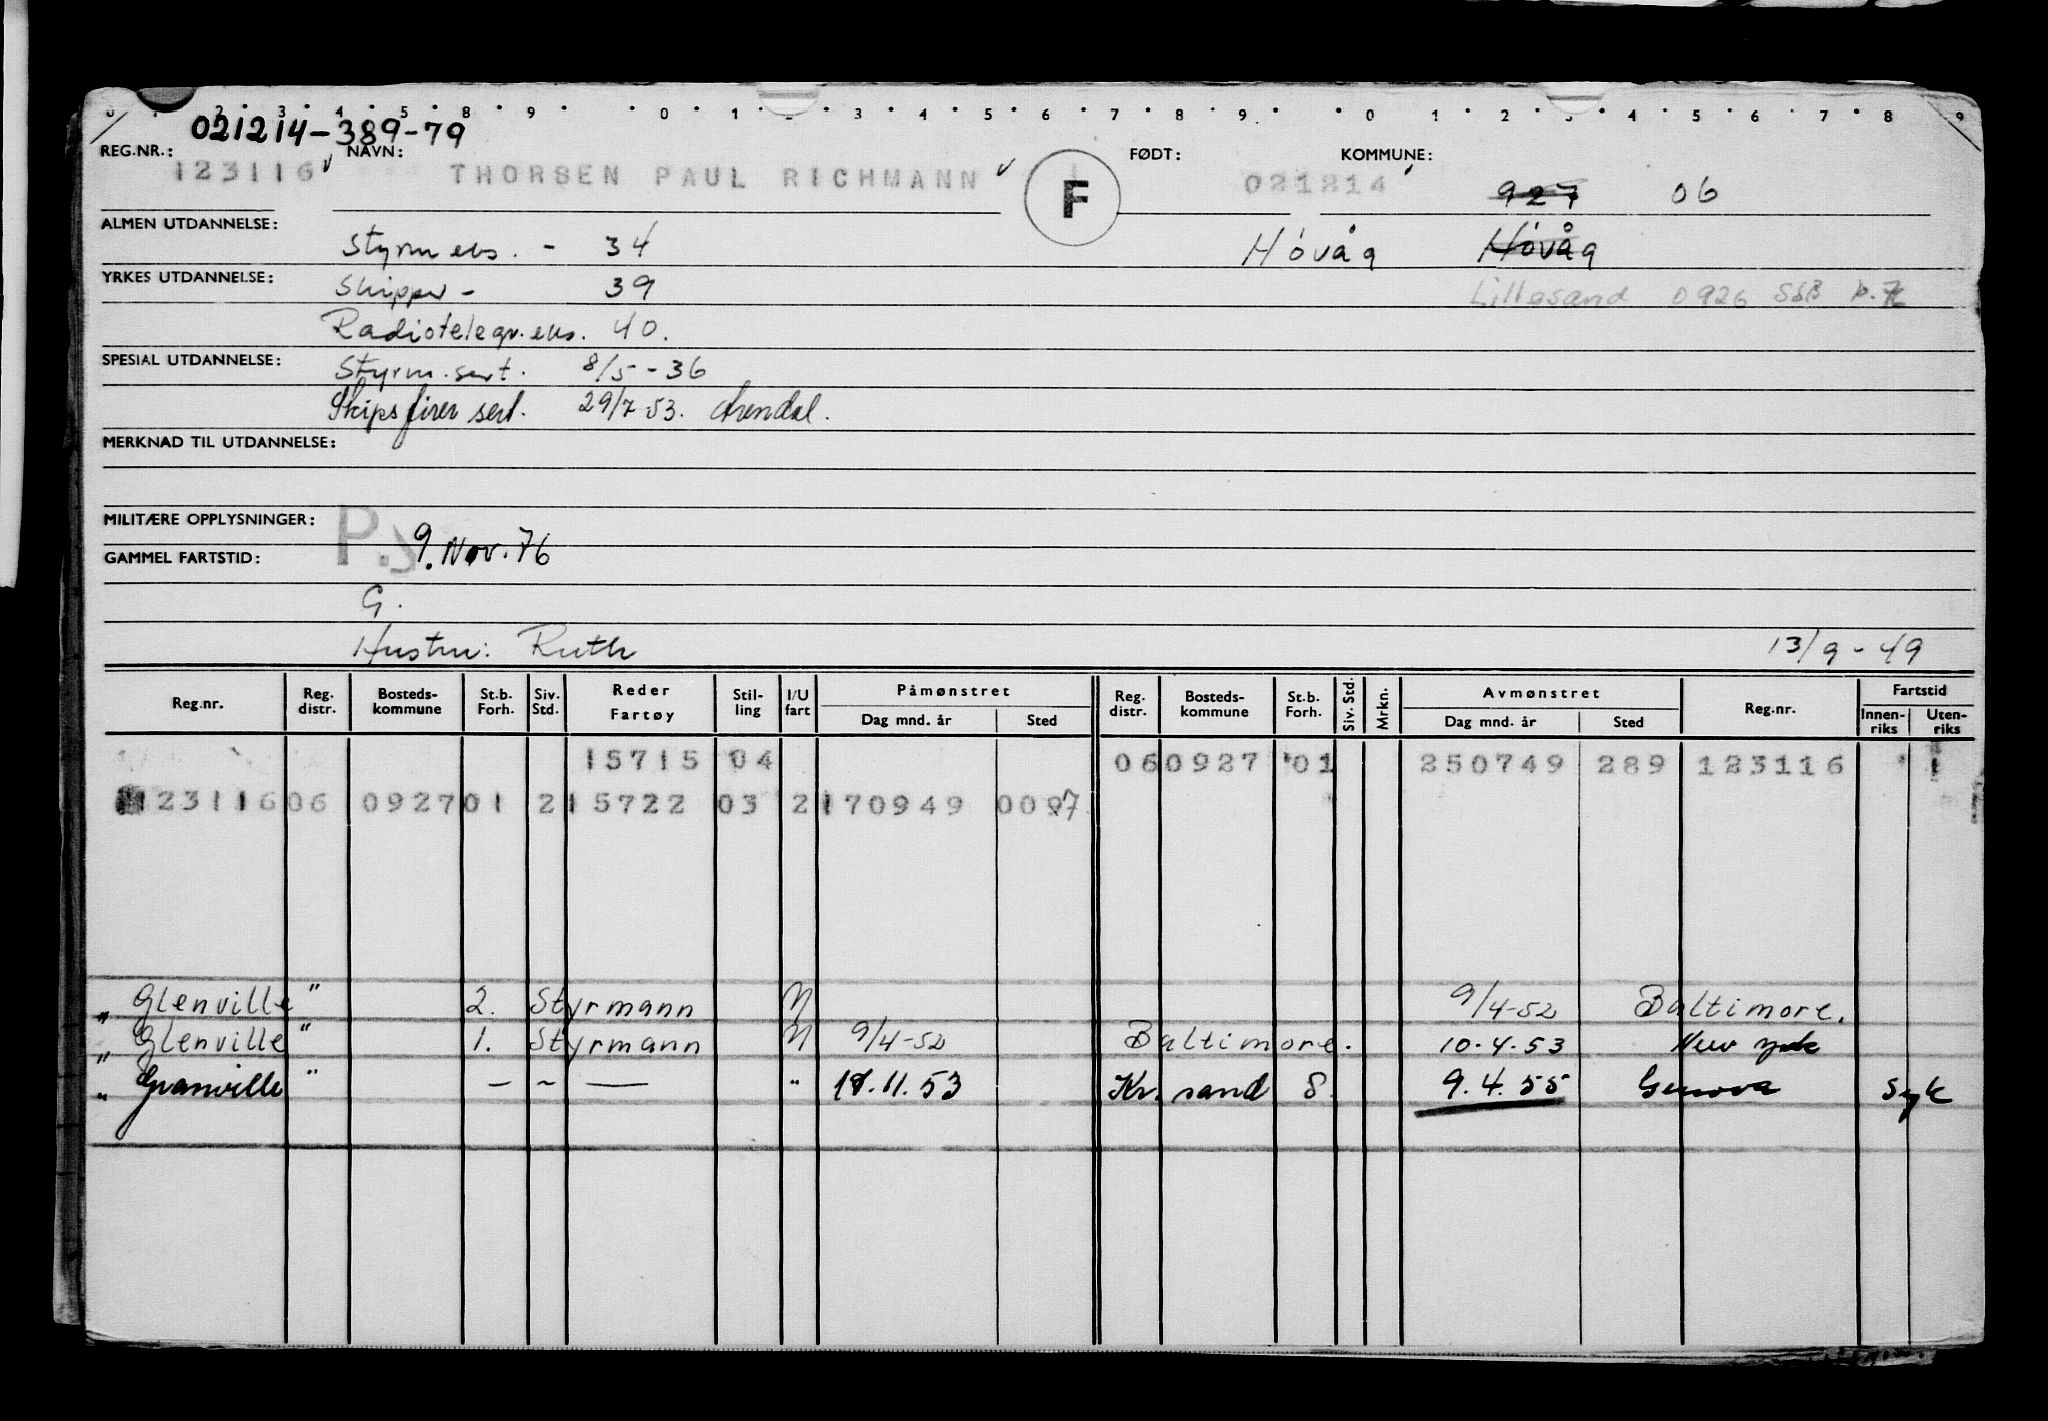 0 2 3 4 5 8 9 0 1 2 3 4 5 6 7 8 9 0 1 2 3 4 5 6 7 8 9
021214-389-79
REG.NR.: NAVN: FØDT: KOMMUNE:
123116 THORSEN PAUL RICHMANN F 021214 927 06
ALMEN UTDANNELSE: Styrm eks. - 34 Høvåg Høvåg
YRKES UTDANNELSE: Skipper - 39 Lillesand 0926 SSB
Radiotelegr. eks. 40.
SPESIAL UTDANNELSE: Styrm. sert. 8/5-36
Skipsfører sert. 29/7 53. Arendal.
MERKNAD TIL UTDANNELSE:
MILITÆRE OPPLYSNINGER: P.
9. Nov. 76
GAMMEL FARTSTID:
G.
Hustru: Ruth 13/9-49
Reg.nr. Reg. distr. Bosteds- kommune St.b. Forh. Siv. Std. Reder Fartøy Stil- ling I/U fart Påmønstret Dag mnd. år Sted Reg. distr. Bosteds- kommune St.b. Forh. Siv. Std. Mrkn. Avmønstret Dag mnd. år Sted Reg.nr. Fartstid Innen- riks Uten- riks
15715 04 06 0927 01 250749 289 123116 1
123116 06 0927 01 2 15722 03 2 170949 0097
„ Glenville " 2. Styrmann N 9/4-52 Baltimore.
„ Glenville " 1. Styrmann N 9/4-52 Baltimore. 10.4.53 New York
„ Granville " — ~ — " 17.11.53 Kr. sand S. 9.4.55 Genova Syk